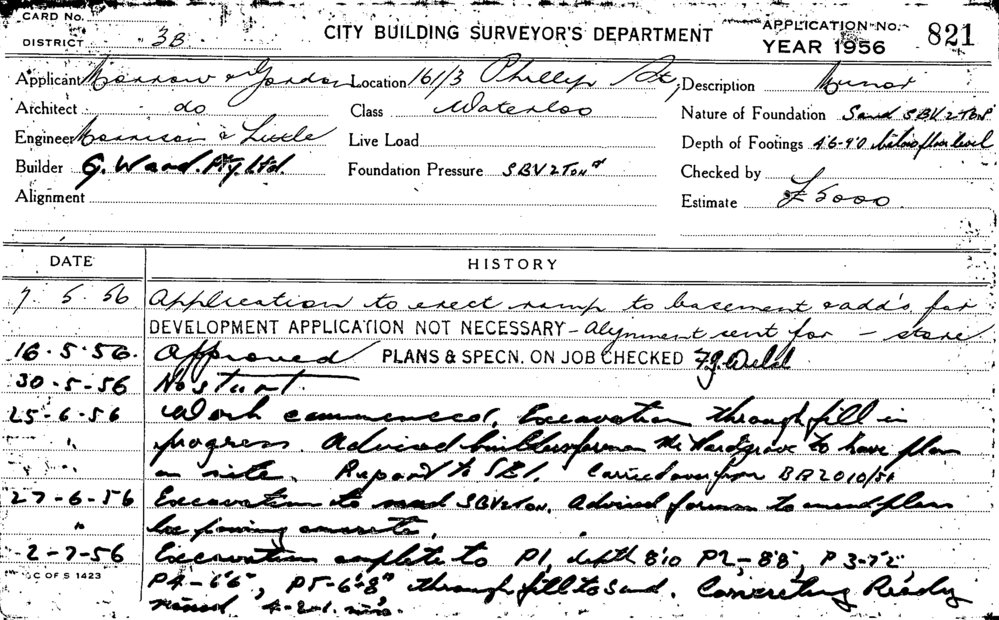 CARD No.
DISTRICT 3B
CITY BUILDING SURVEYOR'S DEPARTMENT
APPLICATION No. 821
YEAR 1956
Applicant Morrow & Gordon Location 161/3 Phillip St, Description Minor
Architect do Class Waterloo Nature of Foundation Sand SBV 2 TON
Engineer Morrison & Little Live Load Depth of Footings 4'6-9'0 below floor level
Builder G. Ward. Pty. Ltd. Foundation Pressure SBV 2 Ton Checked by
Alignment Estimate £5000
DATE HISTORY
7 5 56 Application to erect ramp to basement & add's for
DEVELOPMENT APPLICATION NOT NECESSARY - Alignment sent for - store
16.5.56. Approved PLANS & SPECN. ON JOB CHECKED
30-5-56 No start.
25-6-56 Work commenced. Excavation through fill in
" progress. Advised builders foreman Mr Hardgrave to have plan
" on site. Report to SBI. Carried over from BA 2010/56
27-6-56 Excavation to sand SBV 2 TON. Advised foreman to amend plans
" be pouring concrete.
2-7-56 Excavation complete to P1, depth 8'10 P2,-8'8", P3-7'2"
C OF S 1423
P4-6'6", P5-6'8" through fill to sand. Concreting Ready
mixed 4-2-1. mix.